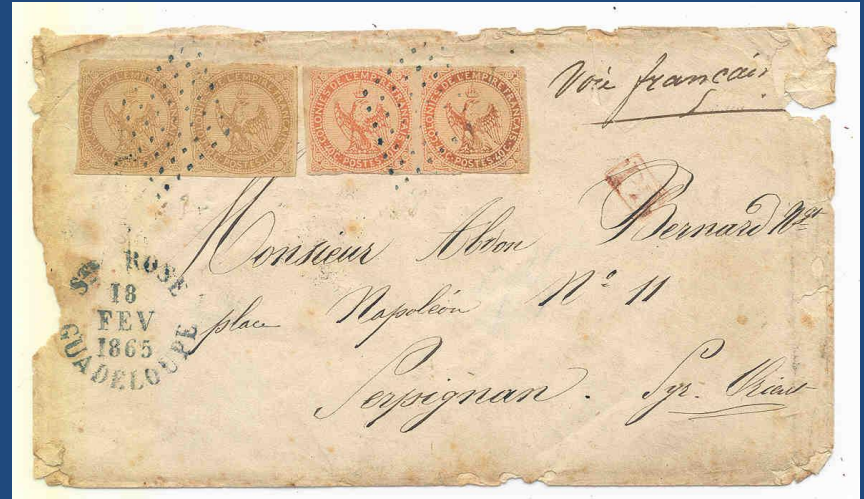 COLONIES DE L'EMPIRE FRANÇAIS
POSTES
COLONIES DE L'EMPIRE FRANÇAIS
POSTES
COLONIES DE L'EMPIRE FRANÇAIS
40 C. POSTES 40 C.
COLONIES DE L'EMPIRE FRANÇAIS
40 C. POSTES 40 C.
Voie français
Monsieur Abdon Bernard Nt
place Napoléon N° 11
Perpignan. Pyr. Orient
Ste ROSE
18
FEV
1865
GUADELOUPE